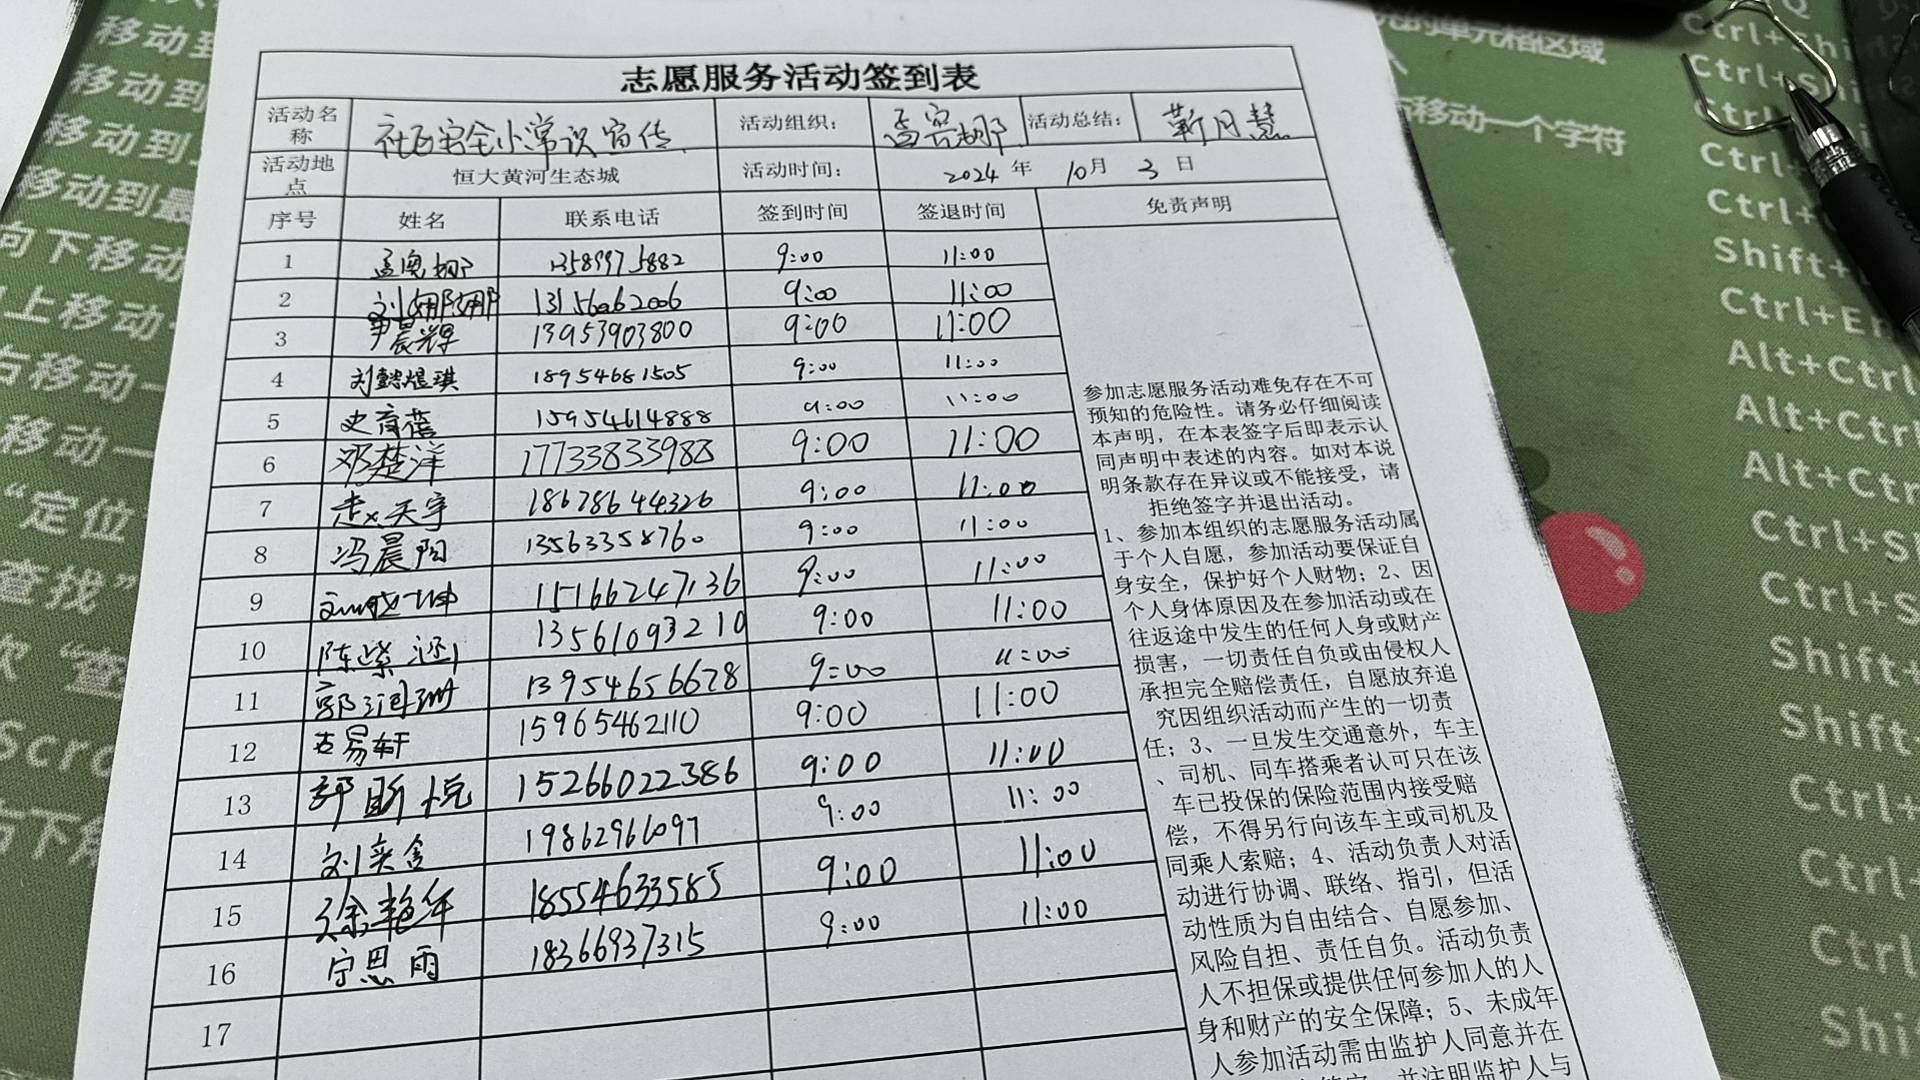 志愿服务活动签到表
活动名称 社区安全小常识宣传 活动组织: 活动总结: 靳月慧
活动地点 恒大黄河生态城 活动时间: 2024 年 10 月 3 日
序号 姓名 联系电话 签到时间 签退时间 免责声明
1 13589975882 9:00 11:00
2 刘娜娜 13156062006 9:00 11:00
3 尹晨辉 13953903800 9:00 11:00
4 刘懿煜琪 18954681505 9:00 11:00
5 史育蓓 15954614888 9:00 11:00
6 邓楚洋 17733833988 9:00 11:00
7 赵天宇 18678644326 9:00 11:00
8 冯晨阳 13563358760 9:00 11:00
9 15166247136 9:00 11:00
10 陈紫涵 13561093210 9:00 11:00
11 郭润珊 13954656678 9:00 11:00
12 古易轩 15965462110 9:00 11:00
13 郭斯悦 15266022386 9:00 11:00
14 刘奕含 19862966097 9:00 11:00
15 徐艳华 18554633585 9:00 11:00
16 宁思雨 18366937315 9:00 11:00
17
参加志愿服务活动难免存在不可
预知的危险性。请务必仔细阅读
本声明，在本表签字后即表示认
同声明中表述的内容。如对本说
明条款存在异议或不能接受，请
拒绝签字并退出活动。
1、参加本组织的志愿服务活动属
于个人自愿，参加活动要保证自
身安全，保护好个人财物；2、因
个人身体原因及在参加活动或在
往返途中发生的任何人身或财产
损害，一切责任自负或由侵权人
承担完全赔偿责任，自愿放弃追
究因组织活动而产生的一切责
任；3、一旦发生交通意外，车主
、司机、同车搭乘者认可只在该
车已投保的保险范围内接受赔
偿，不得另行向该车主或司机及
同乘人索赔；4、活动负责人对活
动进行协调、联络、指引，但活
动性质为自由结合、自愿参加、
风险自担、责任自负。活动负责
人不担保或提供任何参加人的人
身和财产的安全保障；5、未成年
人参加活动需由监护人同意并在
并注明监护人与
移动到
移动到
移动到
移动到最
向下移动
上移动
右移动一
移动一
“定位
查找”
次“查
Scro
右下角
的单元格区域
移动一个字符
Ctrl+Shi
Ctrl+Shi
Ctrl+
Ctrl+
Ctrl+
Shift+
Ctrl+En
Alt+Ctrl
Alt+Ctrl
Alt+Ctr
Ctrl+S
Ctrl+S
Shift+
Shift+
Ctrl+
Ctrl+
Ctrl+
Shif